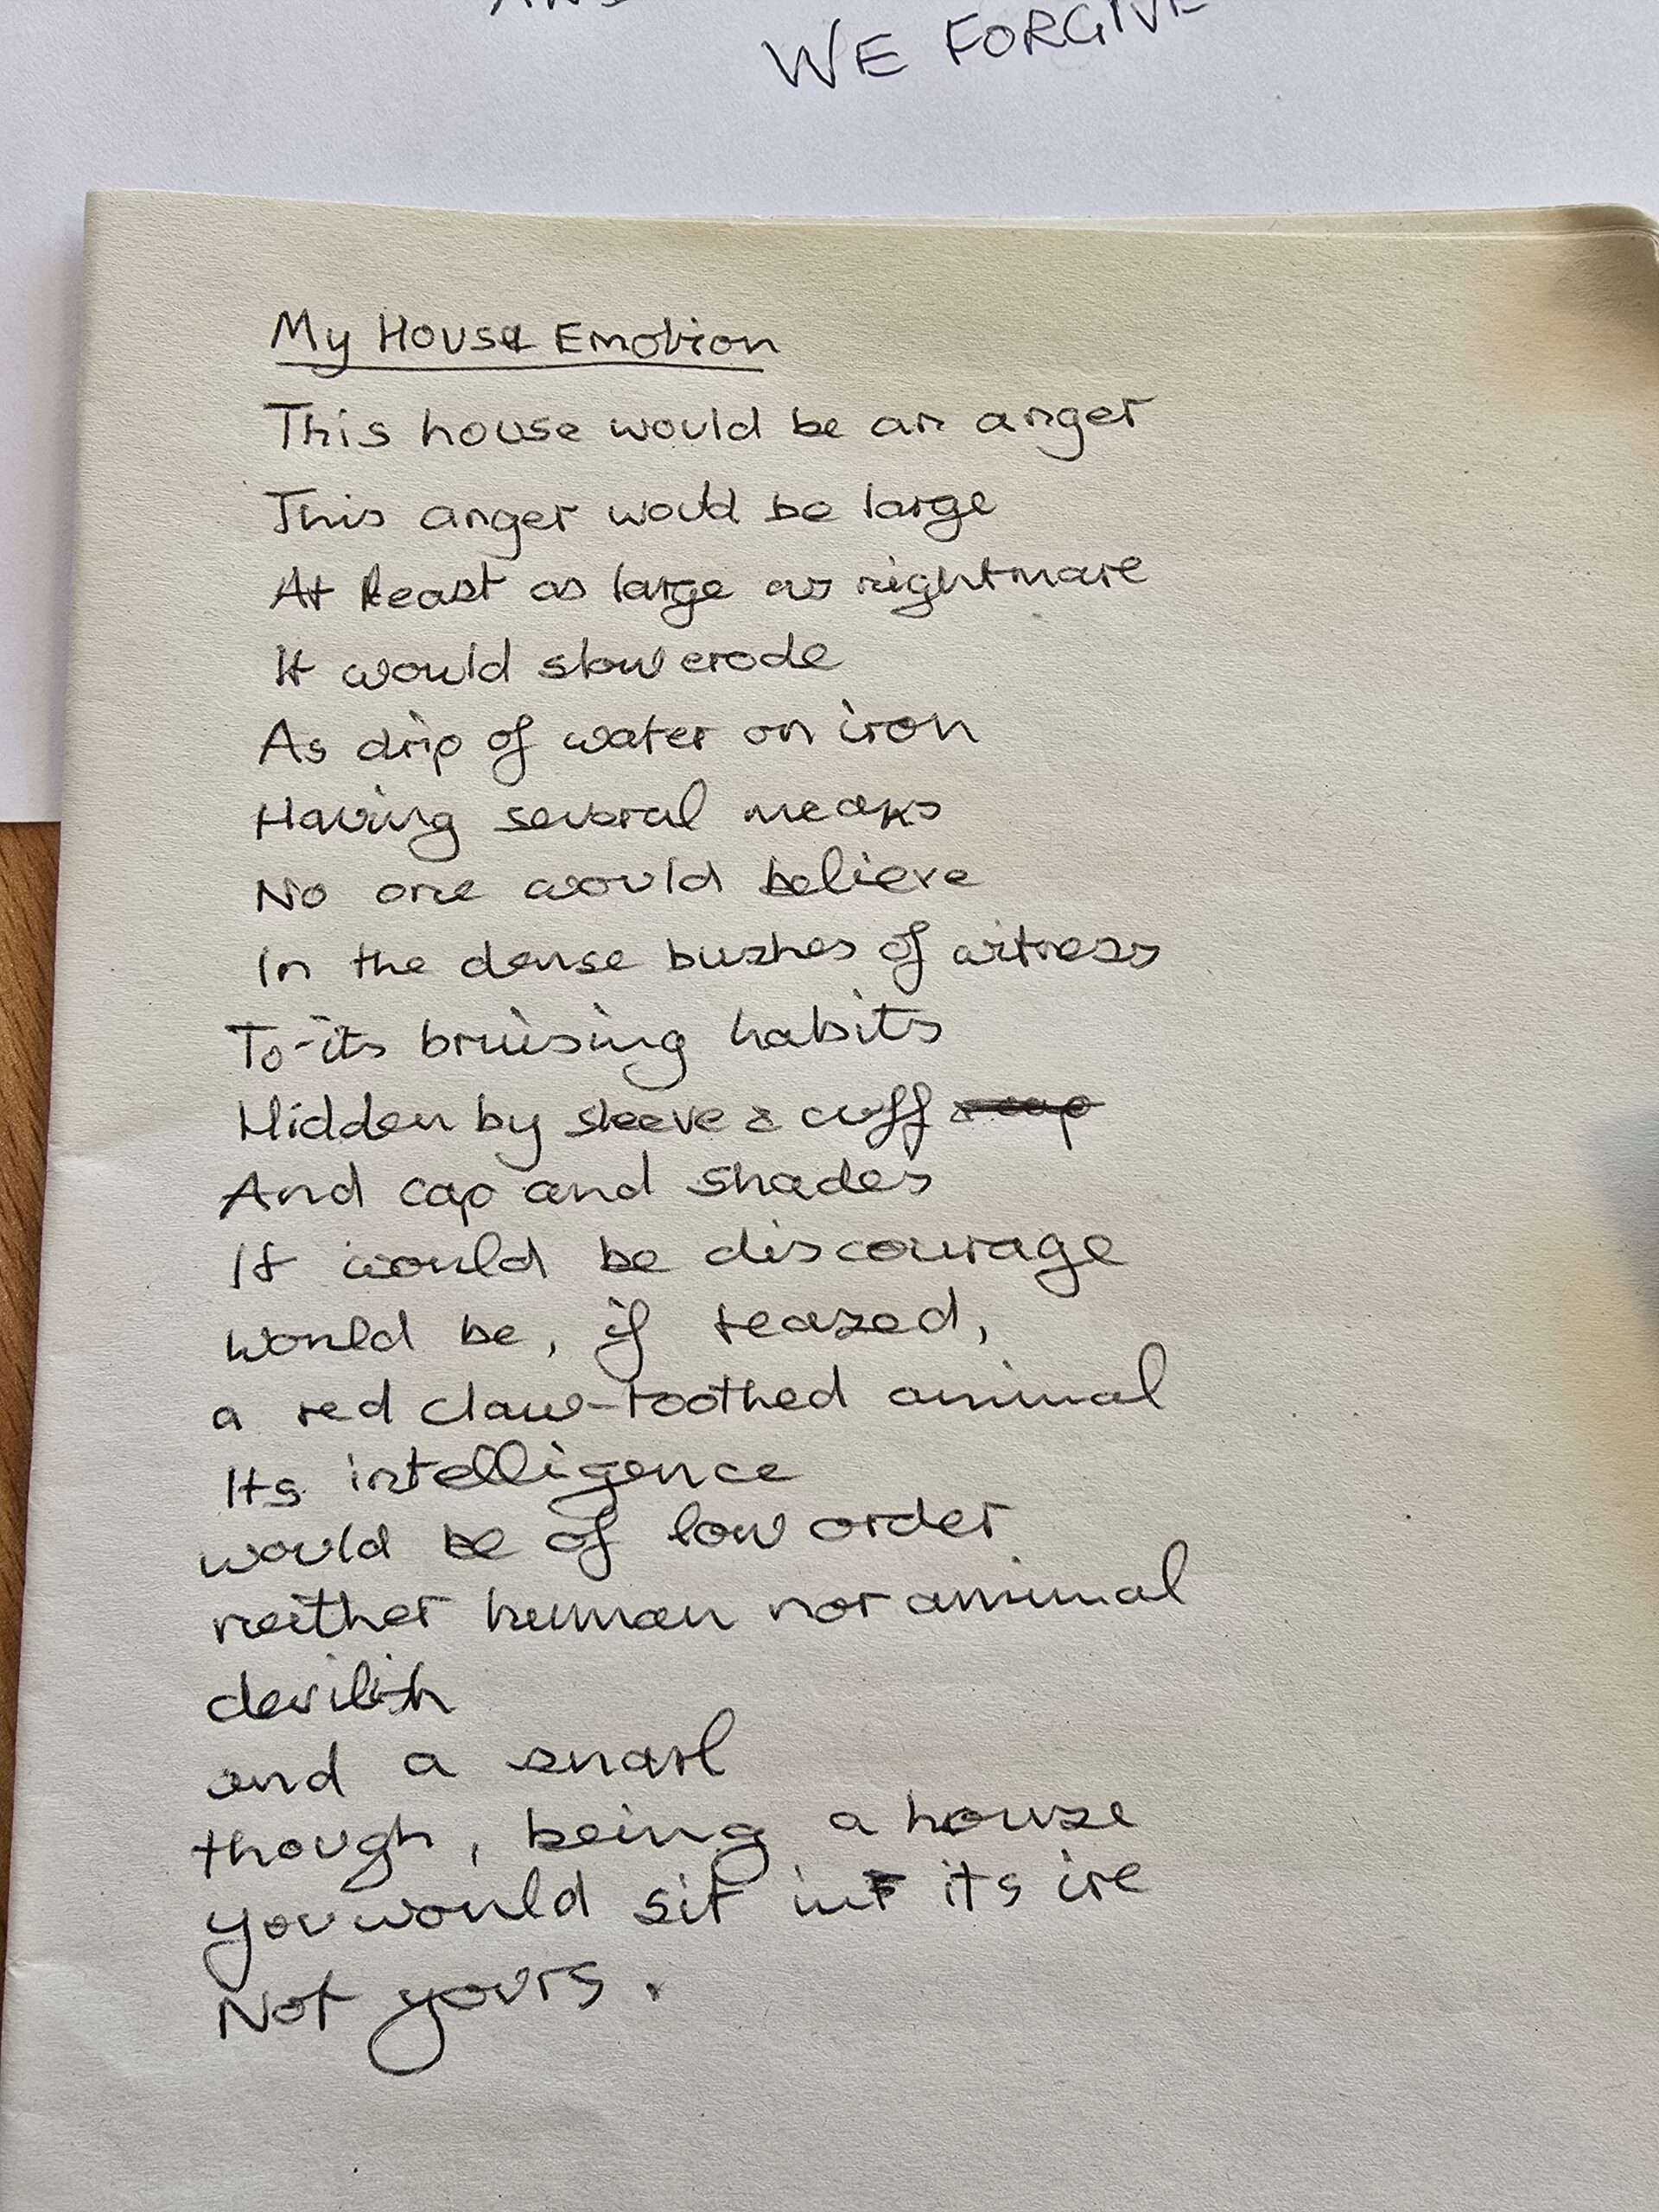 WE FORGIVE
My House Emotion
This house would be an anger
This anger would be large
At least as large as nightmare
It would slow erode
As drip of water on iron
Having several means
No one would believe
In the dense bushes of witness
To its bruising habits
Hidden by sleeve & cuff
And cap and shades
It would be discourage
would be, if teased,
a red claw-toothed animal
Its intelligence
would be of low order
neither human nor animal
devilish
and a snarl
though, being a house
you would sit in its ire
Not yours.